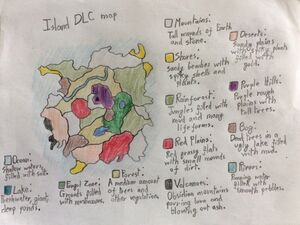 Island DLC map
Mountains:
Tall mounds of Earth
and stone.
Shores:
Sandy beaches with
spiky shells and
plants.
Rainforest:
Jungles filled with
mud and many
lifeforms.
Red Plains:
Red grassy flats
with small mounds
of dirt.
Volcanoes:
Obsidian mountains
pouring lava and
blowing out ash.
Deserts:
Sandy plains
with plants
filled with
gold.
Purple Hills:
Purple rough
plains with
tall trees.
Bog:
Dead trees in a
ugly lake filled
with mud.
Rivers:
Running water
filled with
smooth pebbles.
Ocean:
Shallow waters
filled with salt.
Lake:
Freshwater, giant,
deep ponds.
Fungi Zone:
Grounds filled
with mushrooms.
Forest:
A medium amount
of trees and
other vegetation.